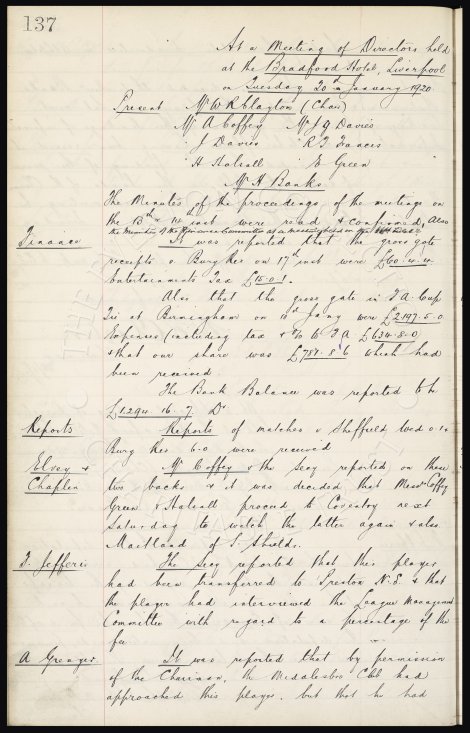 137
At a Meeting of Directors held
at the Bradford Hotel, Liverpool
on Tuesday 20th January 1920.
Present Mr W R Clayton (Chair)
Mr A Coffey Mr J G Davies
" J Davies " R T Frances
" H Halsall " E Green
Mr H Banks
The Minutes of the proceedings of the meetings on
the 13th & 14th inst were read & confirmed, Also
the minutes of the Finance Committee at a meeting held on
Finance
It was reported that the gross gate
receipts v Burg Res on 17th inst were £60.
Entertainments Tax £15.0.1.
Also that the gross gate in F A Cup
Tie at Birmingham on 10th Jany were £2,197.5.0
Expenses (including tax & to F.A. £634.8.0
& that our share was £781.8.6 which had
been received
The Bank Balance was reported to be
£1294.16.7 Dr
Reports
Reports of matches v Sheffield Wed 0.1 v
Burg Res 6.0 were received
Elvey &
Chaplin
Mr Coffey & the Secy reported on these
two backs & it was decided that Messrs Coffey
Green & Halsall proceed to Coventry next
Saturday to watch the latter again & also
Maitland of S. Shields.
F. Jefferis
The Secy reported that this player
had been transferred to Preston N.E. & that
the player had interviewed the League Management
Committee with regard to a percentage of the
fee.
A Grenyer
It was reported that by permission
of the Chairman, the Middlesbro Club had
approached this player, but that he had